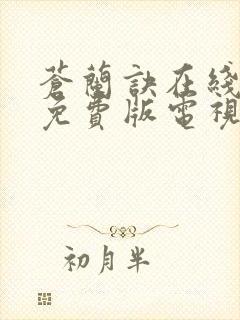 蒼蘭訣在綫
免費版電視
初月半